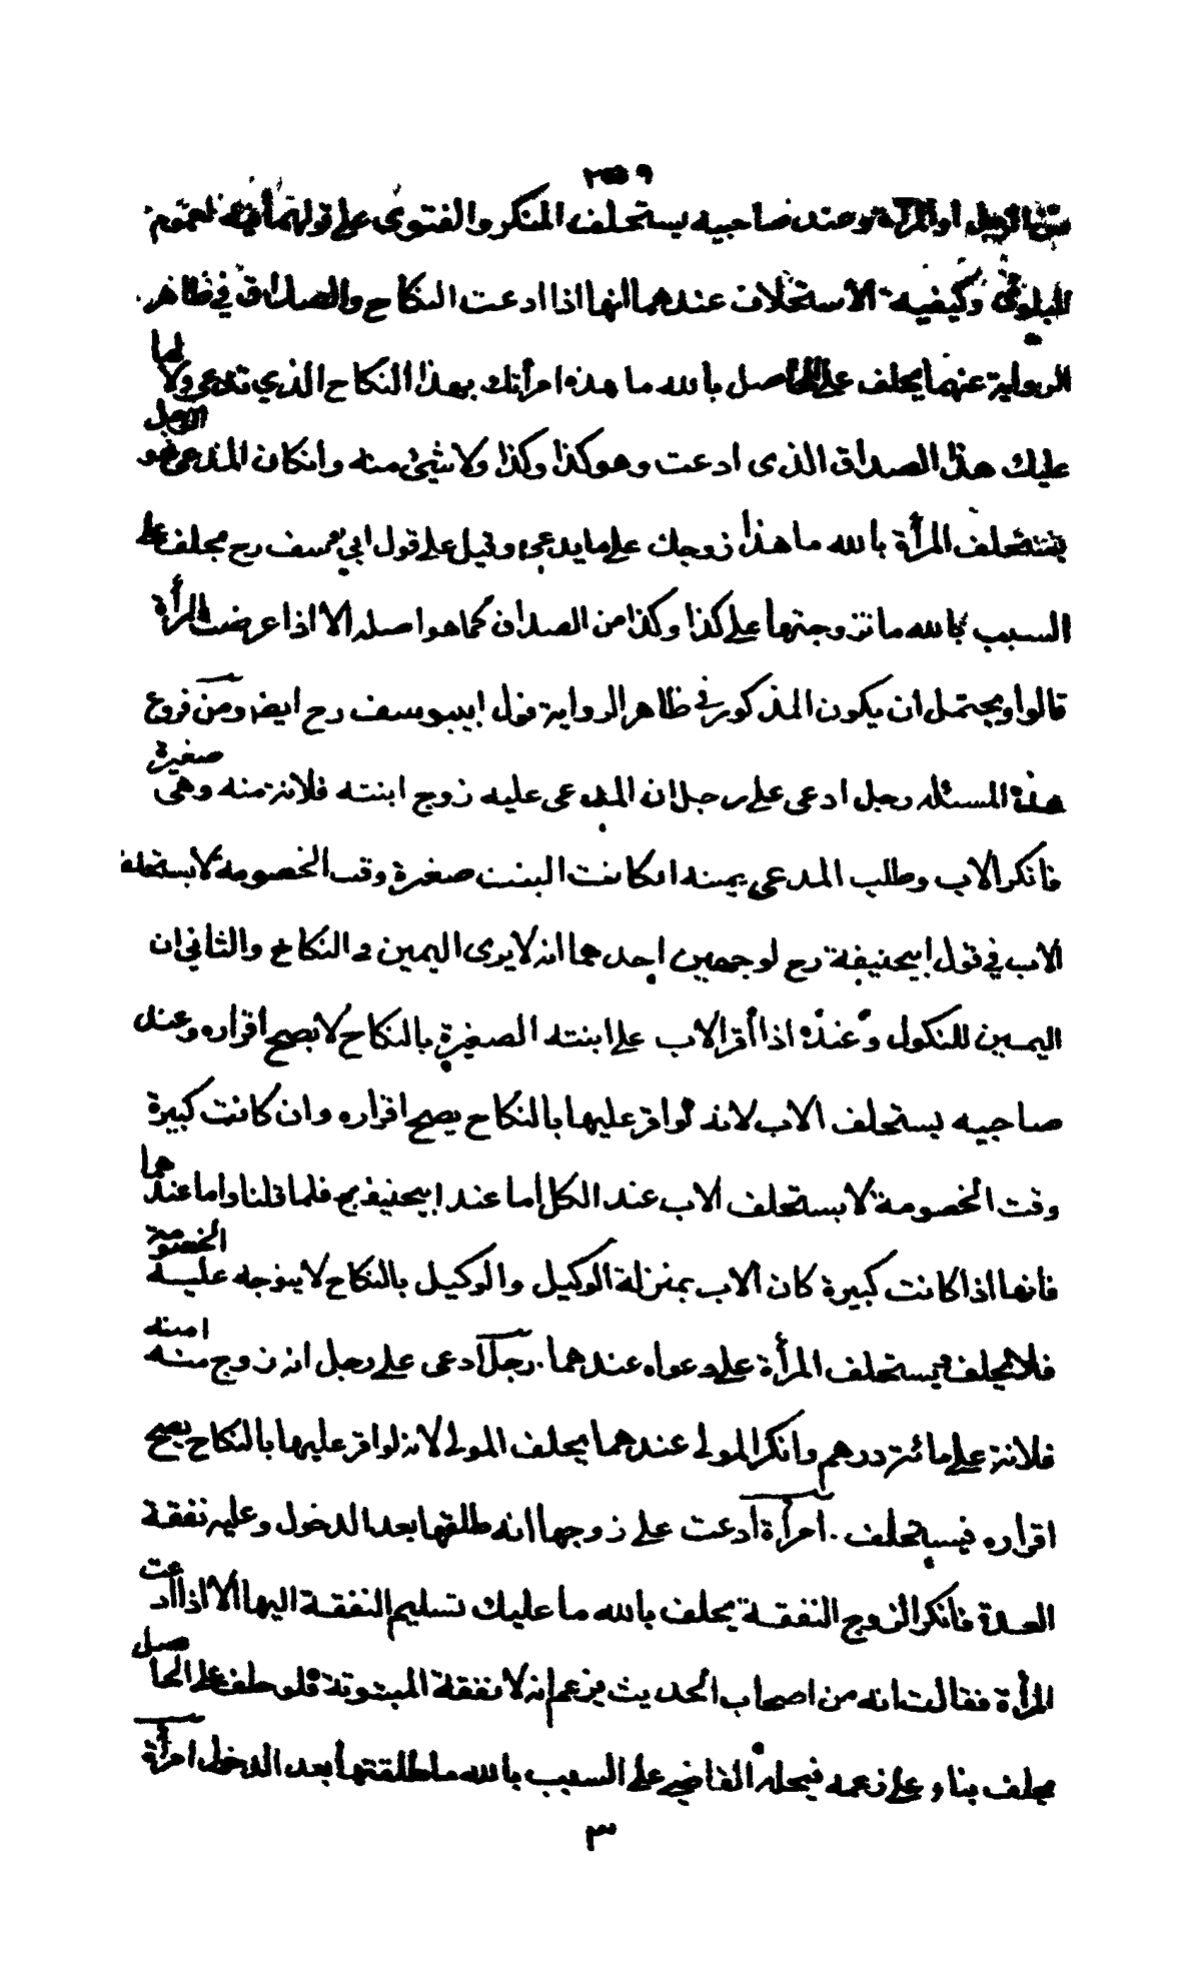 ٢٥٩
الرجل او المرأة وعند صاحبيه يستحلف المنكر والفتوى على قولهما لعموم
البلوى وكيفية الاستحلاف عندهما انها اذا ادعت النكاح والصداق في ظاهر
الرواية عنهما يحلف على الحاصل بالله ما هذه امرأتك بهذا النكاح الذي تدعي ولا لها
عليك هذا الصداق الذى ادعت وهو كذا وكذا ولا شيئ منه وانكان المدعي هو الرجل
يستحلف المرأة بالله ما هذا زوجك على ما يدعي وقيل على قول ابي يوسف رح يحلف على
السبب بالله ما تزوجتها على كذا وكذا من الصداق كما هو اصله الا اذا عرضت المرأة
قالوا ويحتمل ان يكون المذكور في ظاهر الرواية قول ابييوسف رح ايضا ومن فروع
هذه المسئله رجل ادعى على رجل ان المدعى عليه زوج ابنته فلانة منه وهى صغيرة
فانكر الاب وطلب المدعي يمينه انكانت البنت صغيرة وقت الخصومة لا يستحلف
الاب في قول ابيحنيفة رح لوجهين احدهما انه لا يرى اليمين في النكاح والثاني ان
اليمين للنكول وعنده اذا أقر الاب على ابنته الصغيرة بالنكاح لا يصح اقراره وعند
صاحبيه يستحلف الاب لانه لو اقر عليها بالنكاح يصح اقراره وان كانت كبيرة
وقت الخصومة لا يستحلف الاب عند الكل اما عند ابيحنيفة رح فلما قلنا واما عندهما
فانها اذا كانت كبيرة كان الاب بمنزلة الوكيل والوكيل بالنكاح لا يتوجه عليه الخصومة
فلا يحلف ويستحلف المرأة على دعواه عندهما . رجل ادعى على رجل انه زوج منه امته
فلانة على مائة درهم وانكر المولى عندهما يحلف المولى لانه لو اقر عليها بالنكاح يصح
اقراره فيستحلف . امرأة ادعت على زوجها انه طلقها بعد الدخول وعليه نفقة
العدة فانكر الزوج النفقة يحلف بالله ما عليك تسليم النفقة اليها الا اذا ادعت
المرأة فقالت انه من اصحاب الحديث يزعم انه لا نفقة للمبتوتة فلو حلف على الحاصل
يحلف بناء على زعمه فيحلفه القاضي على السبب بالله ما طلقتها بعد الدخول امرأة
٣